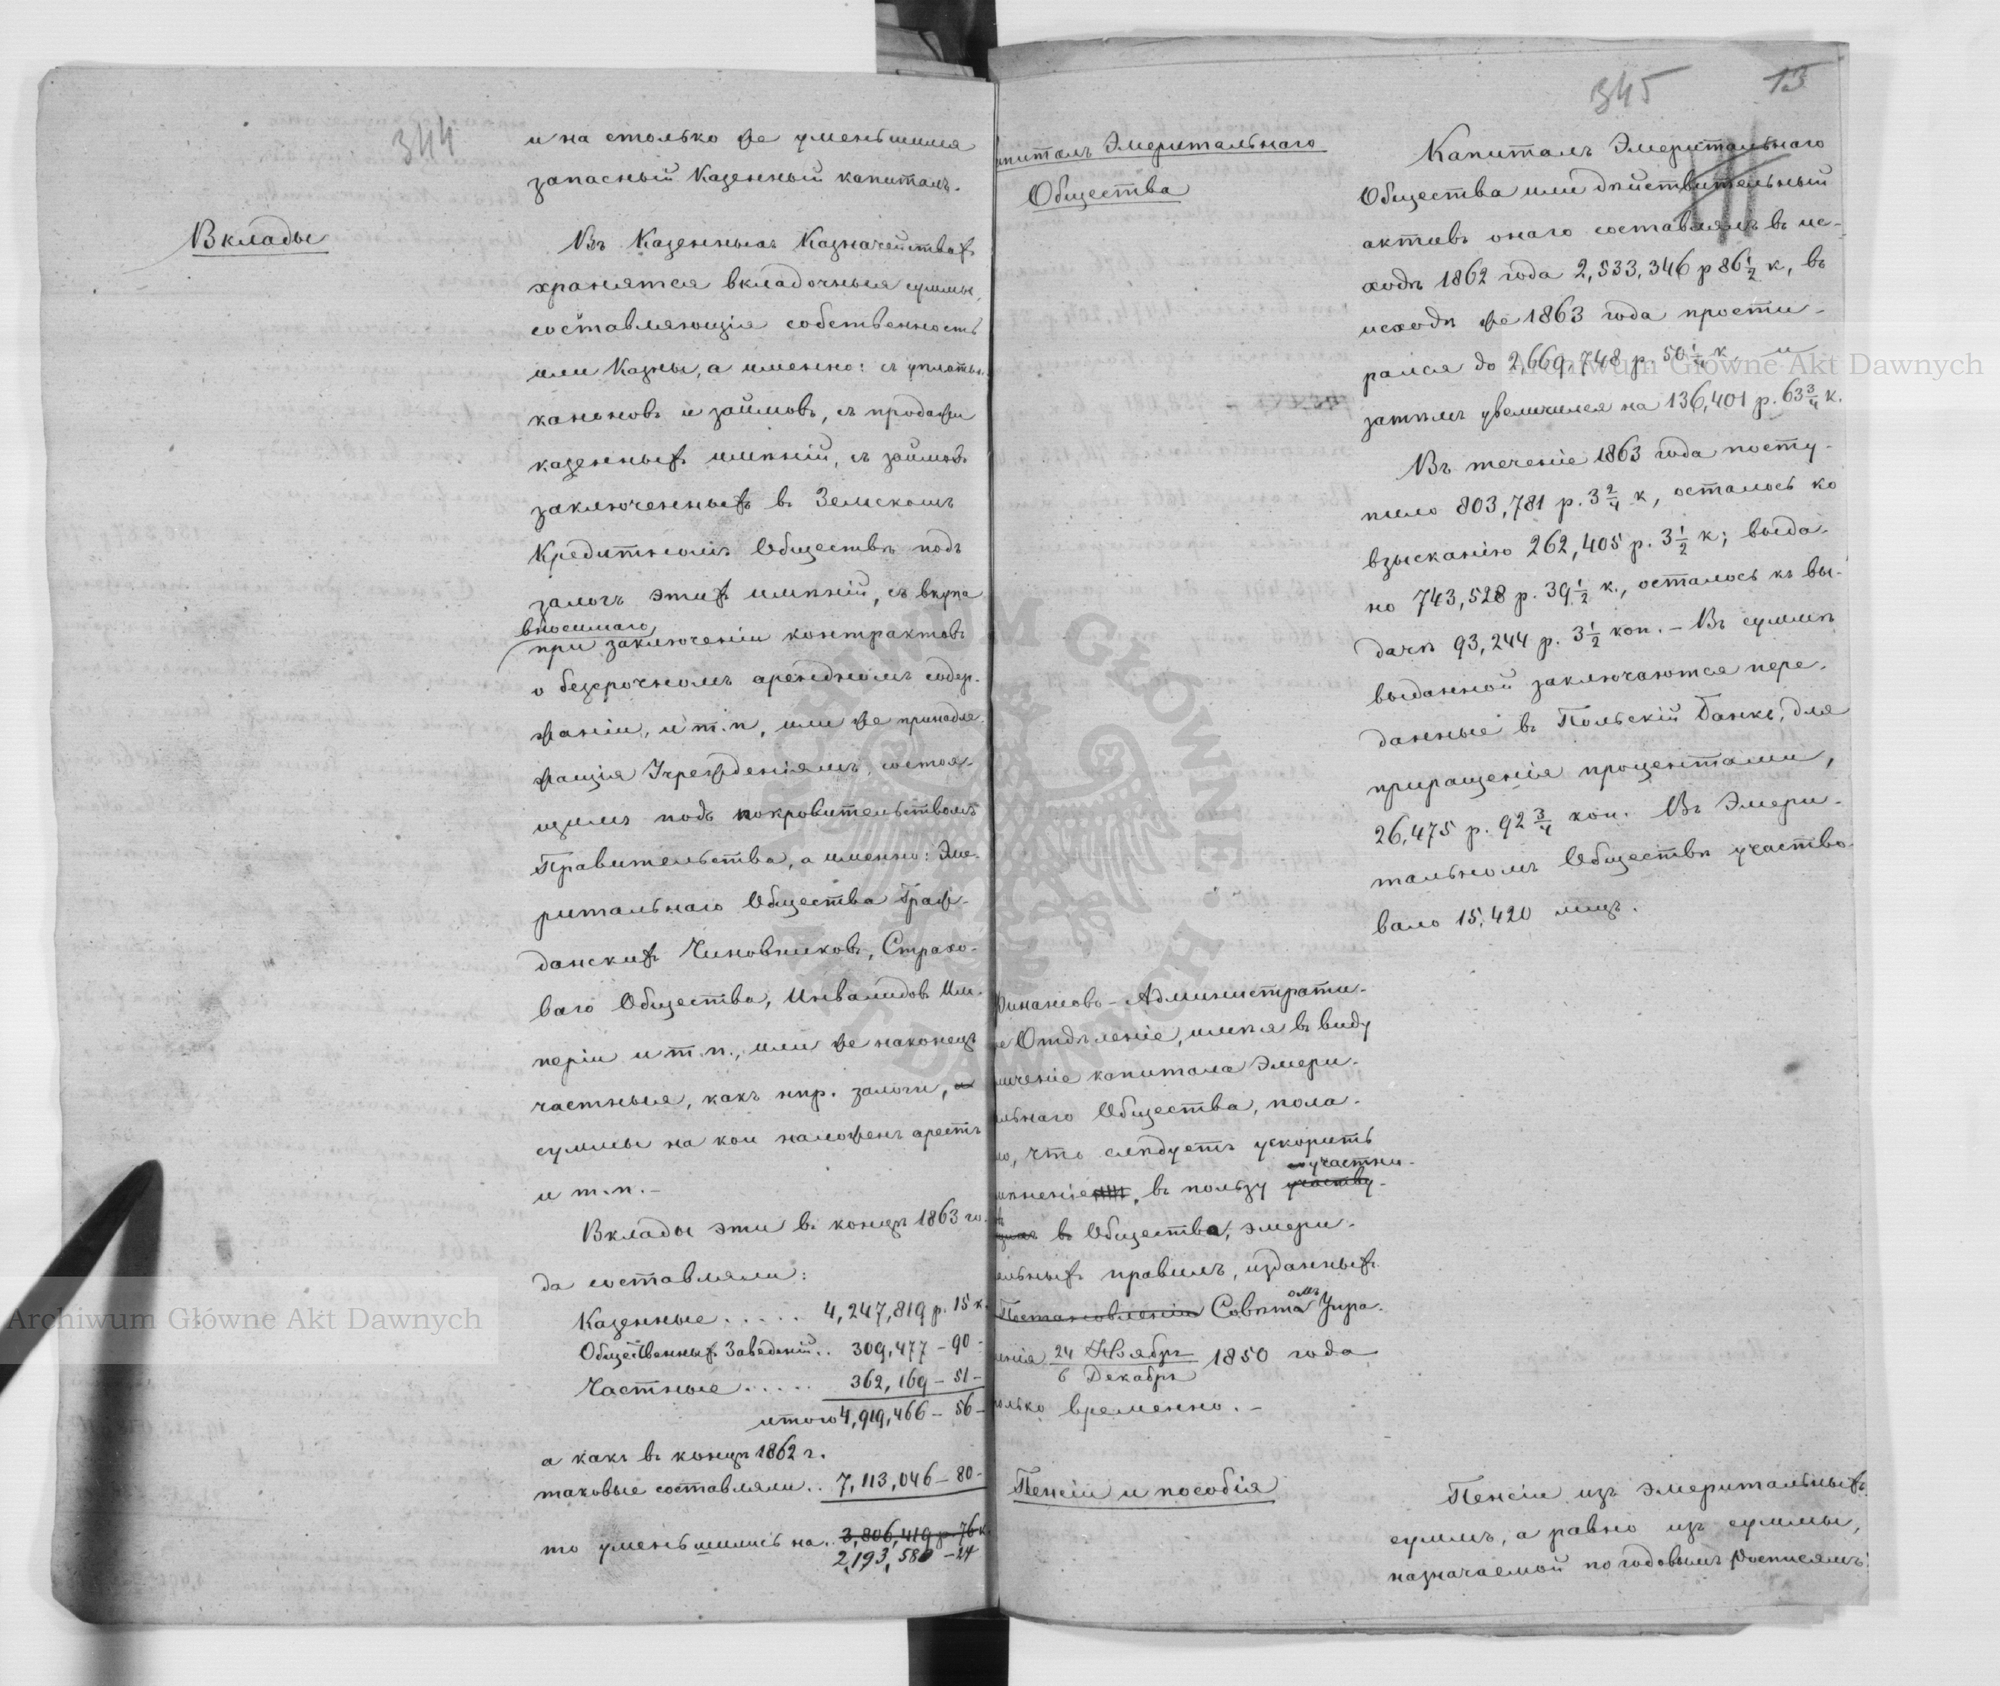 344
и на столько же уменьшился
запасный Казенный капиталъ.
Вклады
Въ Казенныхъ Казначействахъ
хранятся вкладочныя суммы,
составляющія собственность
или Казны, а именно: съ уплаты
каноновъ и займовъ, съ продажи
казенныхъ имѣній, съ займовъ
заключенныхъ въ Земскомъ
Кредитномъ Обществѣ подъ
залогъ этихъ имѣній, съ вкупа
вносимаго
при заключеніи контрактовъ
о безсрочномъ арендномъ содер-
жаніи, и т. п, или же принадле-
жащія Учрежденіямъ, состоя-
щимъ подъ покровительствомъ
Правительства, а именно: Эме-
ритальнаго Общества Граж-
данскихъ Чиновниковъ, Страхо-
ваго Общества, Инвалидовъ Им-
періи и т. п., или же наконецъ
частныя, какъ нпр. залоги,
суммы на кои наложенъ арестъ
и т. п. –
Вклады эти въ концѣ 1863 го-
да составляли:
Казенные . . . . . 4,247,819 р. 15 к.
Общественныхъ Заведеній . . 309,477 – 90 –
Частные . . . . . 362,169 – 51 –
итого 4,919,466 – 56 –
а какъ въ концѣ 1862 г.
таковые составляли . . 7,113,046 – 80 –
то уменьшились на . . 3,806,419 р. 76 к.
2,193,580 – 24
345 13
питалъ Эмеритальнаго
Общества
Капиталъ Эмеритальнаго
Общества или дѣйствительный
активъ онаго составлялъ въ ис-
ходѣ 1862 года 2,533,346 р 86 1/2 к, въ
исходѣ же 1863 года прости-
рался до 2,669,748 р. 50 1/4 к. и
затѣмъ увеличился на 136,401 р. 63 3/4 к.
Въ теченіе 1863 года посту-
пило 803,781 р. 3 2/4 к, осталось ко
взысканію 262,405 р. 3 1/2 к; выда-
но 743,528 р. 39 1/2 к., осталось къ вы-
дачѣ 93,244 р. 3 1/2 коп. – Въ суммѣ
выданной заключаются пере-
данные въ Польскій Банкъ, для
приращенія процентами,
26,475 р. 92 3/4 коп. Въ Эмери-
тальномъ Обществѣ участво-
вало 15,420 лицъ.
Финансово-Администрати-
е Отдѣленіе, имѣя въ виду
личеніе капитала Эмери-
льнаго Общества, пола-
ло, что слѣдуетъ ускорить
участни-
мѣненіе, въ пользу участву-
въ Общества, эмери-
льныхъ правилъ, изданныхъ
омъ
Постановленіи Совѣта Упра-
нія 24 Ноября 1850 года
6 Декабря
только временно. –
Пенсіи и пособія
Пенсіи изъ эмеритальныхъ
суммъ, а равно изъ суммы,
назначаемой по годовымъ Росписямъ
Archiwum Główne Akt Dawnych
Archiwum Główne Akt Dawnych
ARCHIWUM GŁÓWNE AKT DAWNYCH